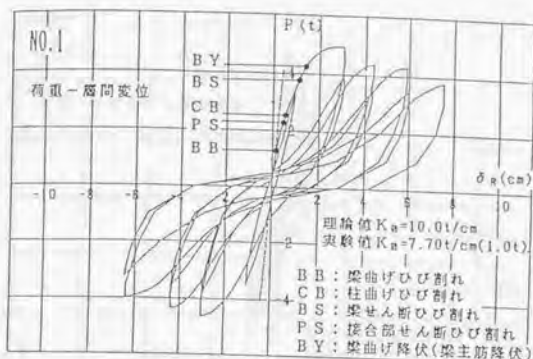 P(t)
NO.1
荷重－層間変位
B Y
B S
C B
P S
B B
δR(cm)
2 6 10
理論値Ke=10.0t/cm
実験値Ke=7.70t/cm(1.0t)
2
4
B B：梁曲げひび割れ
C B：柱曲げひび割れ
B S：梁せん断ひび割れ
P S：接合部せん断ひび割れ
B Y：梁曲げ降伏(梁主筋降伏)